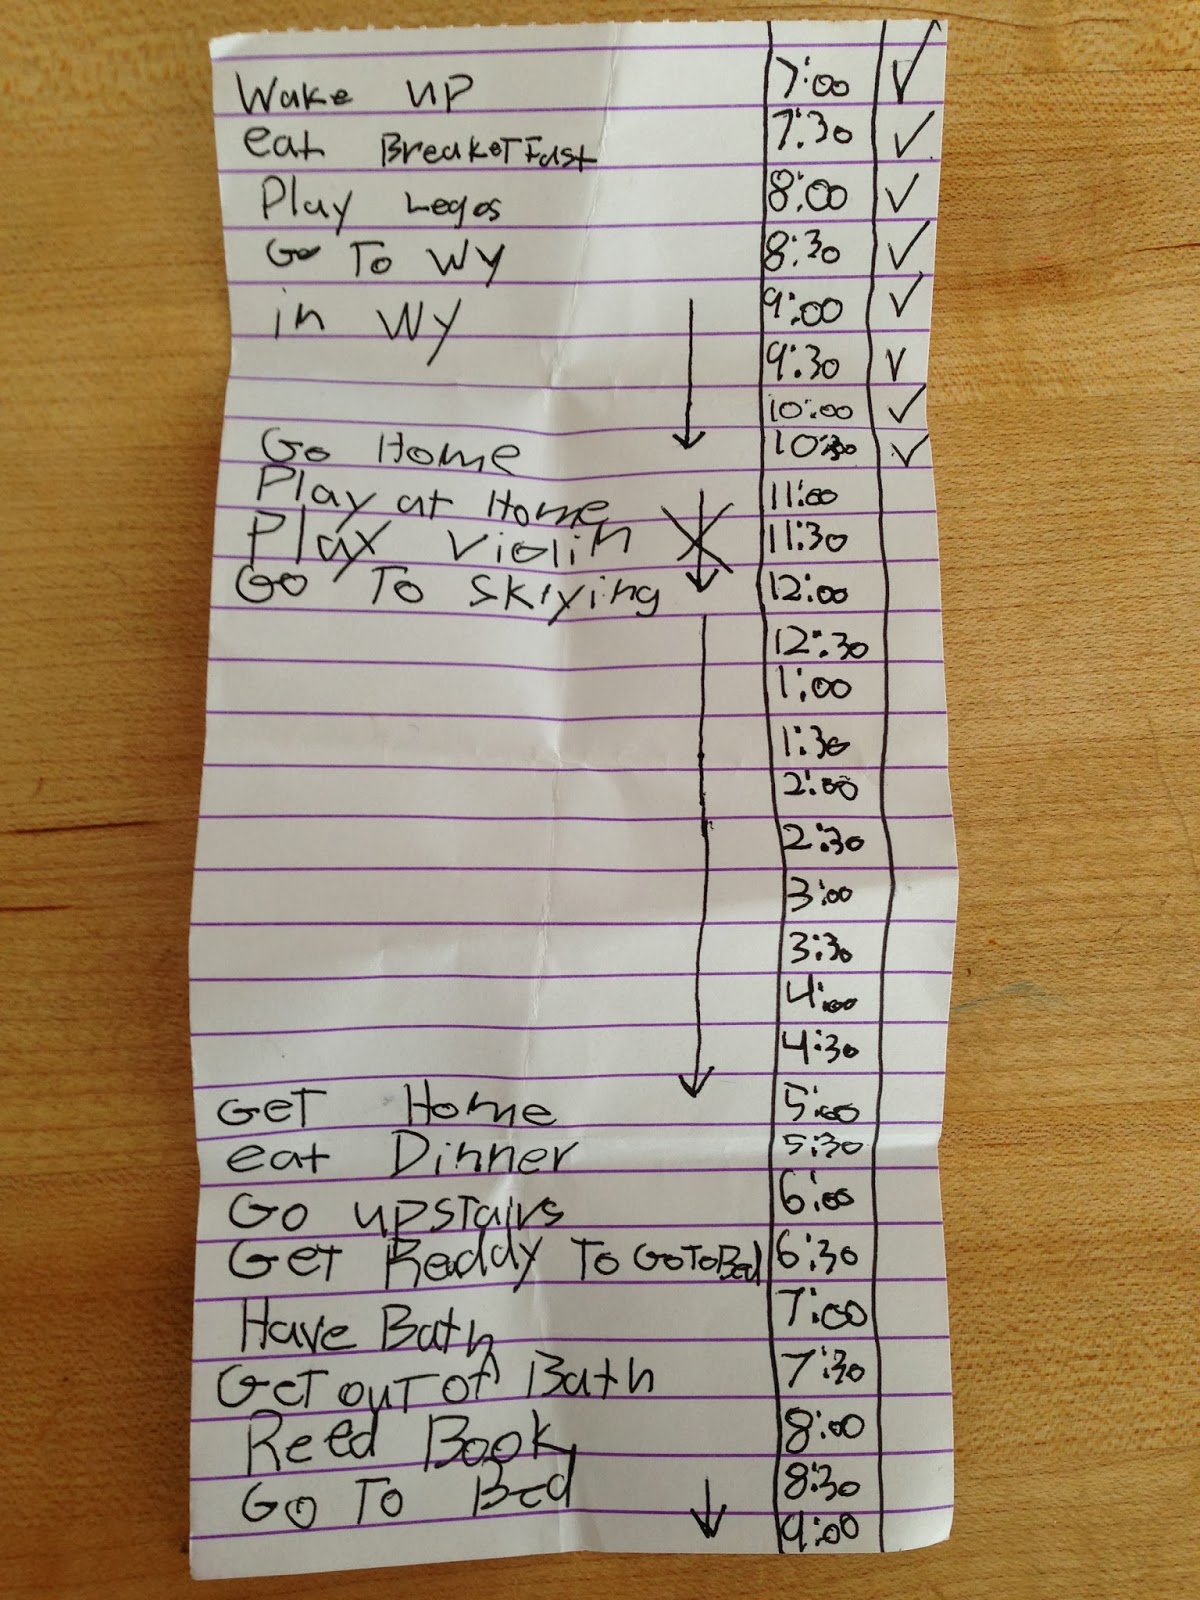 Wake up 7:00 ✓
eat BreakeTFast 7:30 ✓
Play Legos 8:00 ✓
Go To Wy 8:30 ✓
in Wy 9:00 ✓
9:30 ✓
10:00 ✓
Go Home 10:30 ✓
Play at Home 11:00
Play Violin 11:30
Go To Skiying 12:00
12:30
1:00
1:30
2:00
2:30
3:00
3:30
4:00
4:30
GeT Home 5:00
eat Dinner 5:30
Go upstairs 6:00
Get Readdy To GoToBed 6:30
Have Bath 7:00
GeT ouT Of Bath 7:30
Reed Book 8:00
Go To Bed 8:30
9:00